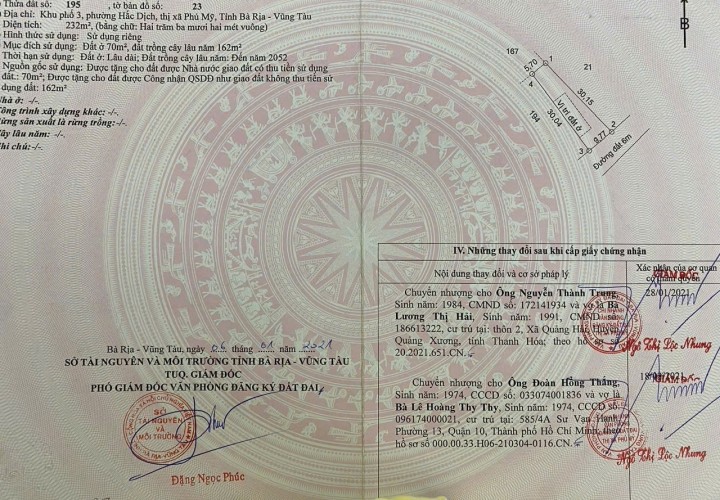 Thửa đất số: 195 , tờ bản đồ số: 23
Địa chỉ: Khu phố 3, phường Hắc Dịch, thị xã Phú Mỹ, Tỉnh Bà Rịa - Vũng Tàu
Diện tích: 232m², (bằng chữ: Hai trăm ba mươi hai mét vuông)
Hình thức sử dụng: Sử dụng riêng
Mục đích sử dụng: Đất ở 70m², đất trồng cây lâu năm 162m²
Thời hạn sử dụng: Đất ở: Lâu dài; Đất trồng cây lâu năm: Đến năm 2052
Nguồn gốc sử dụng: Được tặng cho đất được Nhà nước giao đất có thu tiền sử dụng
đất.: 70m²; Được tặng cho đất được Công nhận QSDĐ như giao đất không thu tiền sử
dụng đất: 162m²
Nhà ở: -/-.
Công trình xây dựng khác: -/-.
Rừng sản xuất là rừng trồng: -/-.
Cây lâu năm: -/-.
Ghi chú:-/-.
B
167
5.70
1
21
4
30.15
194
30.04
Vị trí đất ở
2
9.77
3
Đường đất 6m
Bà Rịa - Vũng Tàu, ngày 04 tháng 01 năm 2021
SỞ TÀI NGUYÊN VÀ MÔI TRƯỜNG TỈNH BÀ RỊA - VŨNG TÀU
TUQ. GIÁM ĐỐC
PHÓ GIÁM ĐỐC VĂN PHÒNG ĐĂNG KÝ ĐẤT ĐAI
SỞ
TÀI NGUYÊN
VÀ
MÔI TRƯỜNG
Đặng Ngọc Phúc
IV. Những thay đổi sau khi cấp giấy chứng nhận
Nội dung thay đổi và cơ sở pháp lý
Xác nhận của cơ quan
có thẩm quyền
GIÁM ĐỐC
Chuyển nhượng cho Ông Nguyễn Thành Trung,
Sinh năm: 1984, CMND số: 172141934 và vợ là Bà
Lương Thị Hải, Sinh năm: 1991, CMND số:
186613222, cư trú tại: thôn 2, Xã Quảng Hải, Huyện
Quảng Xương, tỉnh Thanh Hóa; theo hồ sơ số
20.2021.651.CN.
28/01/2021
Ngô Thị Lộc Nhung
Chuyển nhượng cho Ông Đoàn Hồng Thắng,
Sinh năm: 1974, CCCD số: 033074001836 và vợ là
Bà Lê Hoàng Thy Thy, Sinh năm: 1974, CCCD số:
096174000021, cư trú tại: 585/4A Sư Vạn Hạnh,
Phường 13, Quận 10, Thành phố Hồ Chí Minh; theo
hồ sơ số 000.00.33.H06-210304-0116.CN.
GIÁM ĐỐC
Ngô Thị Lộc Nhung